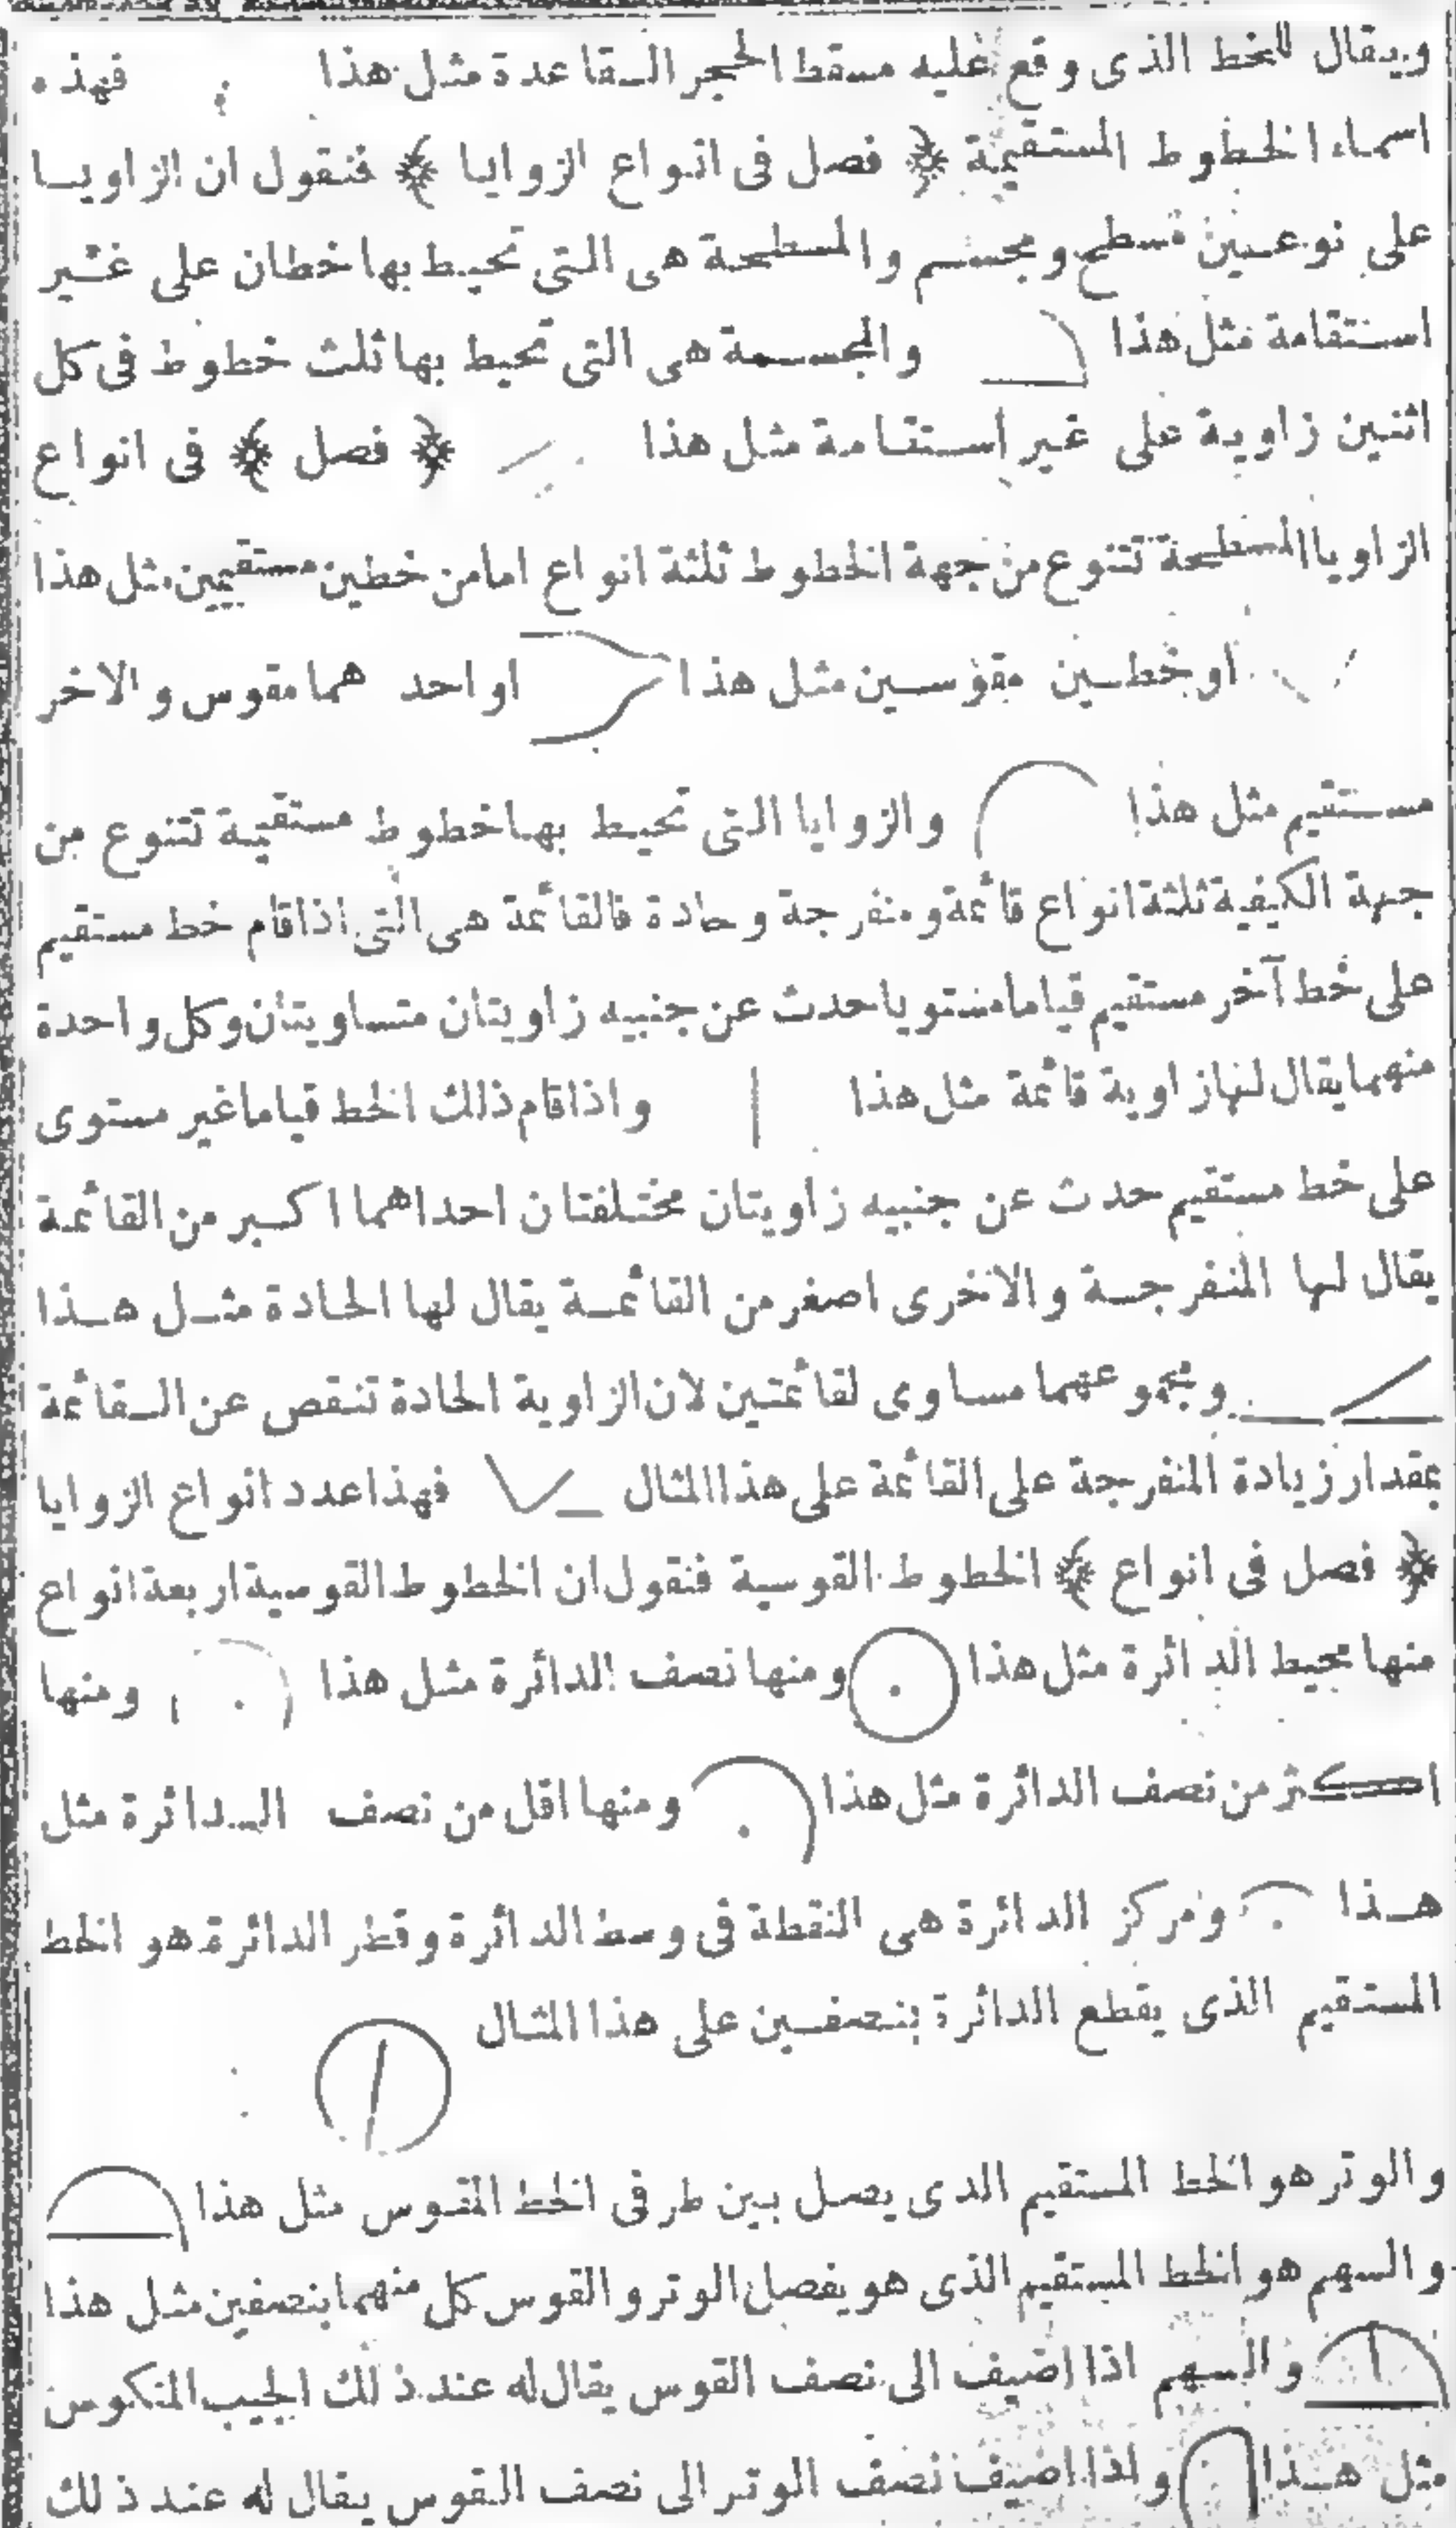 ويقال للخط الذى وقع عليه مسقط الحجر القاعدة مثل هذا فهذه
اسماء الخطوط المستقيمة ﴿ فصل فى انواع الزوايا ﴾ فنقول ان الزاويا
على نوعين مسطح ومجسم والمسطحة هى التى تحيط بها خطان على غير
استقامة مثل هذا والمجسمة هى التى تحيط بها ثلث خطوط فى كل
اثنين زاوية على غير استقامة مثل هذا ﴿ فصل ﴾ فى انواع
الزاويا المسطحة تتنوع من جهة الخطوط ثلثة انواع اما من خطين مستقيمين مثل هذا
او خطين مقوسين مثل هذا او احد هما مقوس والاخر
مستقيم مثل هذا والزوايا التى تحيط بها خطوط مستقيمة تتنوع من
جهة الكيفية ثلثة انواع قائمة ومنفرجة وحادة فالقائمة هى التى اذا قام خط مستقيم
على خط آخر مستقيم قياما مستويا حدث عن جنبيه زاويتان متساويتان وكل واحدة
منهما يقال لها زاوية قائمة مثل هذا واذا قام ذلك الخط قياما غير مستوى
على خط مستقيم حدث عن جنبيه زاويتان مختلفتان احداهما اكبر من القائمة
يقال لها المنفرجة والاخرى اصغر من القائمة يقال لها الحادة مثل هذا
ومجموعهما مساوى لقائمتين لان الزاوية الحادة تنقص عن القائمة
بمقدار زيادة المنفرجة على القائمة على هذا المثال فهذا عدد انواع الزوايا
﴿ فصل فى انواع ﴾ الخطوط القوسية فنقول ان الخطوط القوسية اربعة انواع
منها محيط الدائرة مثل هذا ومنها نصف الدائرة مثل هذا ومنها
اكثر من نصف الدائرة مثل هذا ومنها اقل من نصف الدائرة مثل
هذا ومركز الدائرة هى النقطة فى وسط الدائرة وقطر الدائرة هو الخط
المستقيم الذى يقطع الدائرة بنصفين على هذا المثال
والوتر هو الخط المستقيم الدى يصل بين طرفى الخط المقوس مثل هذا
والسهم هو الخط المستقيم الذى هو يفصل الوتر والقوس كل منهما بنصفين مثل هذا
والسهم اذا اضيف الى نصف القوس يقال له عند ذلك الجيب المنكوس
مثل هذا واذا اضيف نصف الوتر الى نصف القوس يقال له عند ذلك